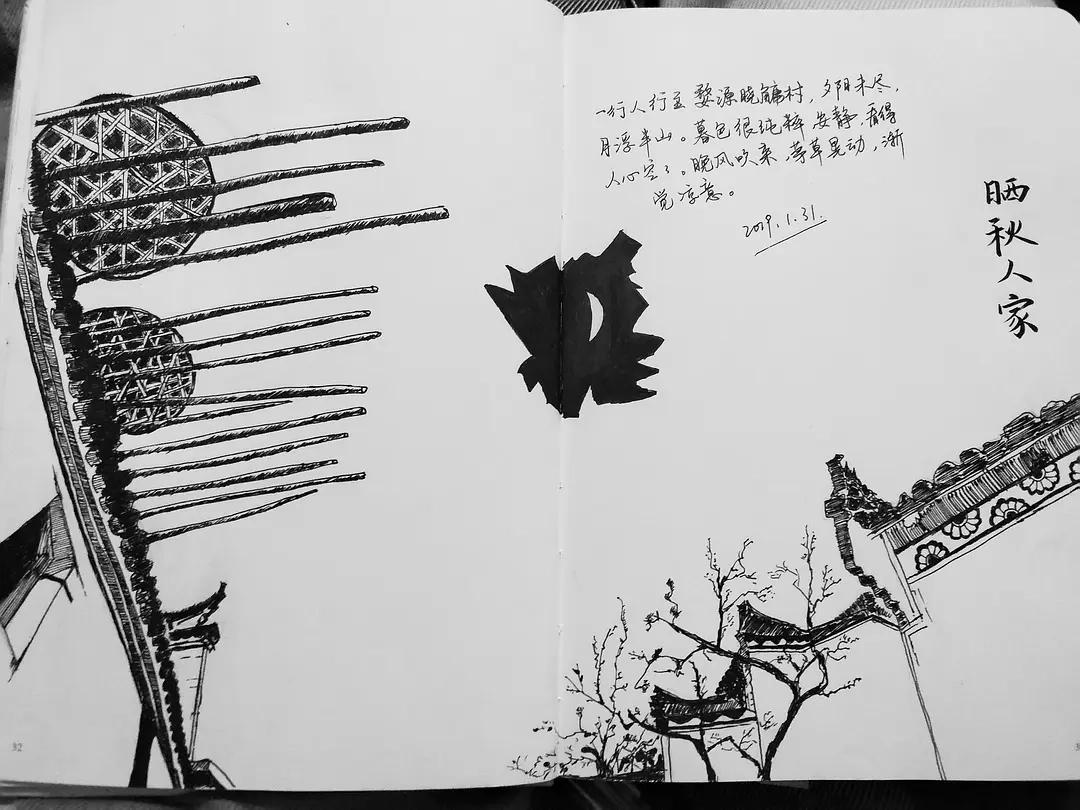 一行人行至 婺源晓鳙村，夕阳未尽，
月浮半山。暮色很纯粹 安静，看得
人心空了。晚风吹来 草晃动，渐
觉凉意。
2019.1.31.
晒秋人家
32